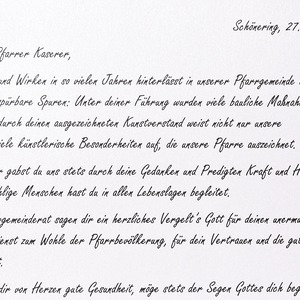 Schönering, 27.
farrer Kaserer,
und Wirken in so vielen Jahren hinterlässt in unserer Pfarrgemeinde
spürbare Spuren: Unter deiner Führung wurden viele bauliche Maßnahm
durch deinen ausgezeichneten Kunstverstand weist nicht nur unsere
iele künstlerische Besonderheiten auf, die unsere Pfarre auszeichnet.
r gabst du uns stets durch deine Gedanken und Predigten Kraft und H
hlige Menschen hast du in allen Lebenslagen begleitet.
rgemeinderat sagen dir ein herzliches Vergelt's Gott für deinen unermü
ienst zum Wohle der Pfarrbevölkerung, für dein Vertrauen und die gut
t.
dir von Herzen gute Gesundheit, möge stets der Segen Gottes dich beg